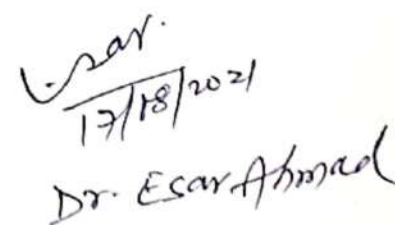 Esar.
17/08/2021
Dr. Esar Ahmad